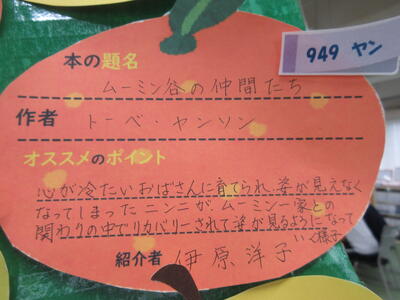 949 ヤン
本の題名
ムーミン谷の仲間たち
作者
トーベ・ヤンソン
オススメのポイント
心が冷たいおばさんに育てられ、姿が見えなく
なってしまったニンニが、ムーミン一家との
関わりの中でリカバリーされて姿が見るようになって
いく様子
紹介者 伊原洋子